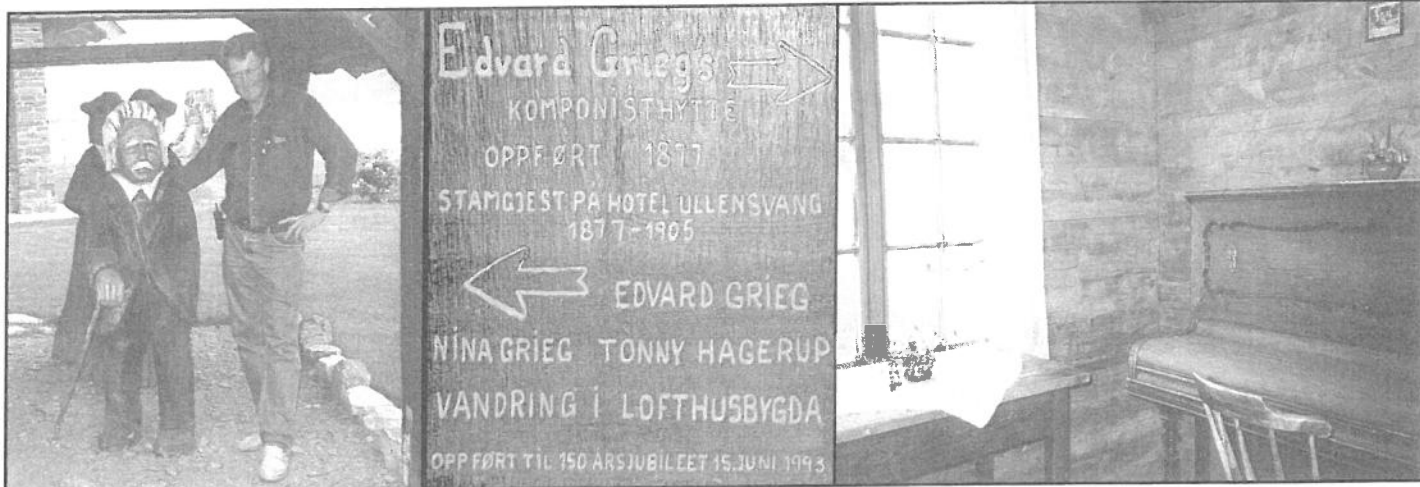 Edvard Grieg's
KOMPONISTHYTTE
OPPFØRT 1877
STAMGJEST PÅ HOTEL ULLENSVANG
1877-1905
EDVARD GRIEG
NINA GRIEG TONNY HAGERUP
VANDRING I LOFTHUSBYGDA
OPPFØRT TIL 150 ÅRSJUBILEET 15.JUNI 1993